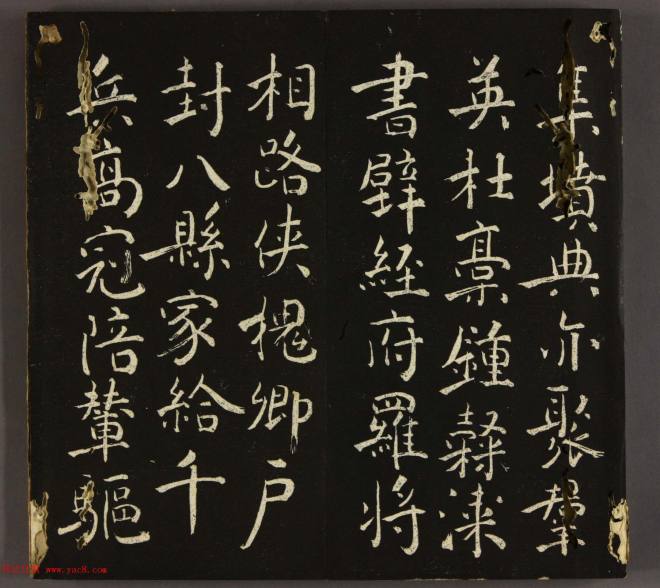 集墳典亦聚羣
英杜稾鍾隸漆
書壁經府羅將
相路俠槐卿戶
封八縣家給千
兵高冠陪輦驅
www.yac8.com